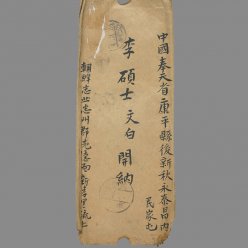 中國奉天省康平縣後新秋永泰昌內
民家屯
李碩士 文白 開納
朝鮮忠北忠州郡